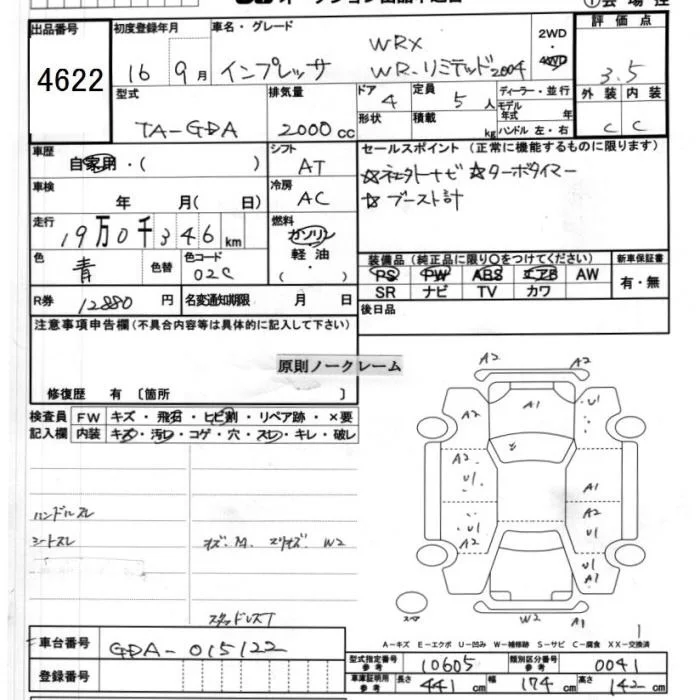 出品番号 初度登録年月 車名・グレード 2WD・4WD 評価点
4622 16 9月 インプレッサ WRX
WR-リミテッド2004 3.5
型式 排気量 ドア 4 定員 5人 ディーラー・並行 外装 内装
TA-GDA 2000cc 形状 積載 kg モデル年式 年 ハンドル 左・右 C C
車歴 自家用・( ) シフト AT セールスポイント (正常に機能するものに限ります)
車検 年 月( 日) 冷房 AC ☆ターボタイマー
☆ブースト計
走行 19万0千346km 燃料 ガソリン・軽油・( )
色 青 色替 色コード 02C 装備品 (純正品に限り○をつけてください) 新車保証書
PS PW ABS エアB AW 有・無
SR ナビ TV カワ
R券 12880円 名変通知期限 月 日 後日品
注意事項申告欄(不具合内容等は具体的に記入して下さい)
原則ノークレーム
修復歴 有 〔箇所 〕
検査員 FW キズ・飛石・ヒビ割・リペア跡・×要
記入欄 内装 キズ・汚レ・コゲ・穴・スレ・キレ・破レ
ハンドルスレ
シートスレ W2
A2 A2
A2 A1 U1
A2 U1 A1
A2 U1 A2
U1 A1
スペア W2 A1
A-キズ E-エクボ U-凹み W-補修跡 S-サビ C-腐食 XX-交換済
車台番号 GDA-015122
型式指定番号 参考 10605 類別区分番号 参考 0041
登録番号 車庫証明用 参考 長さ 441cm 幅 174cm 高さ 142cm